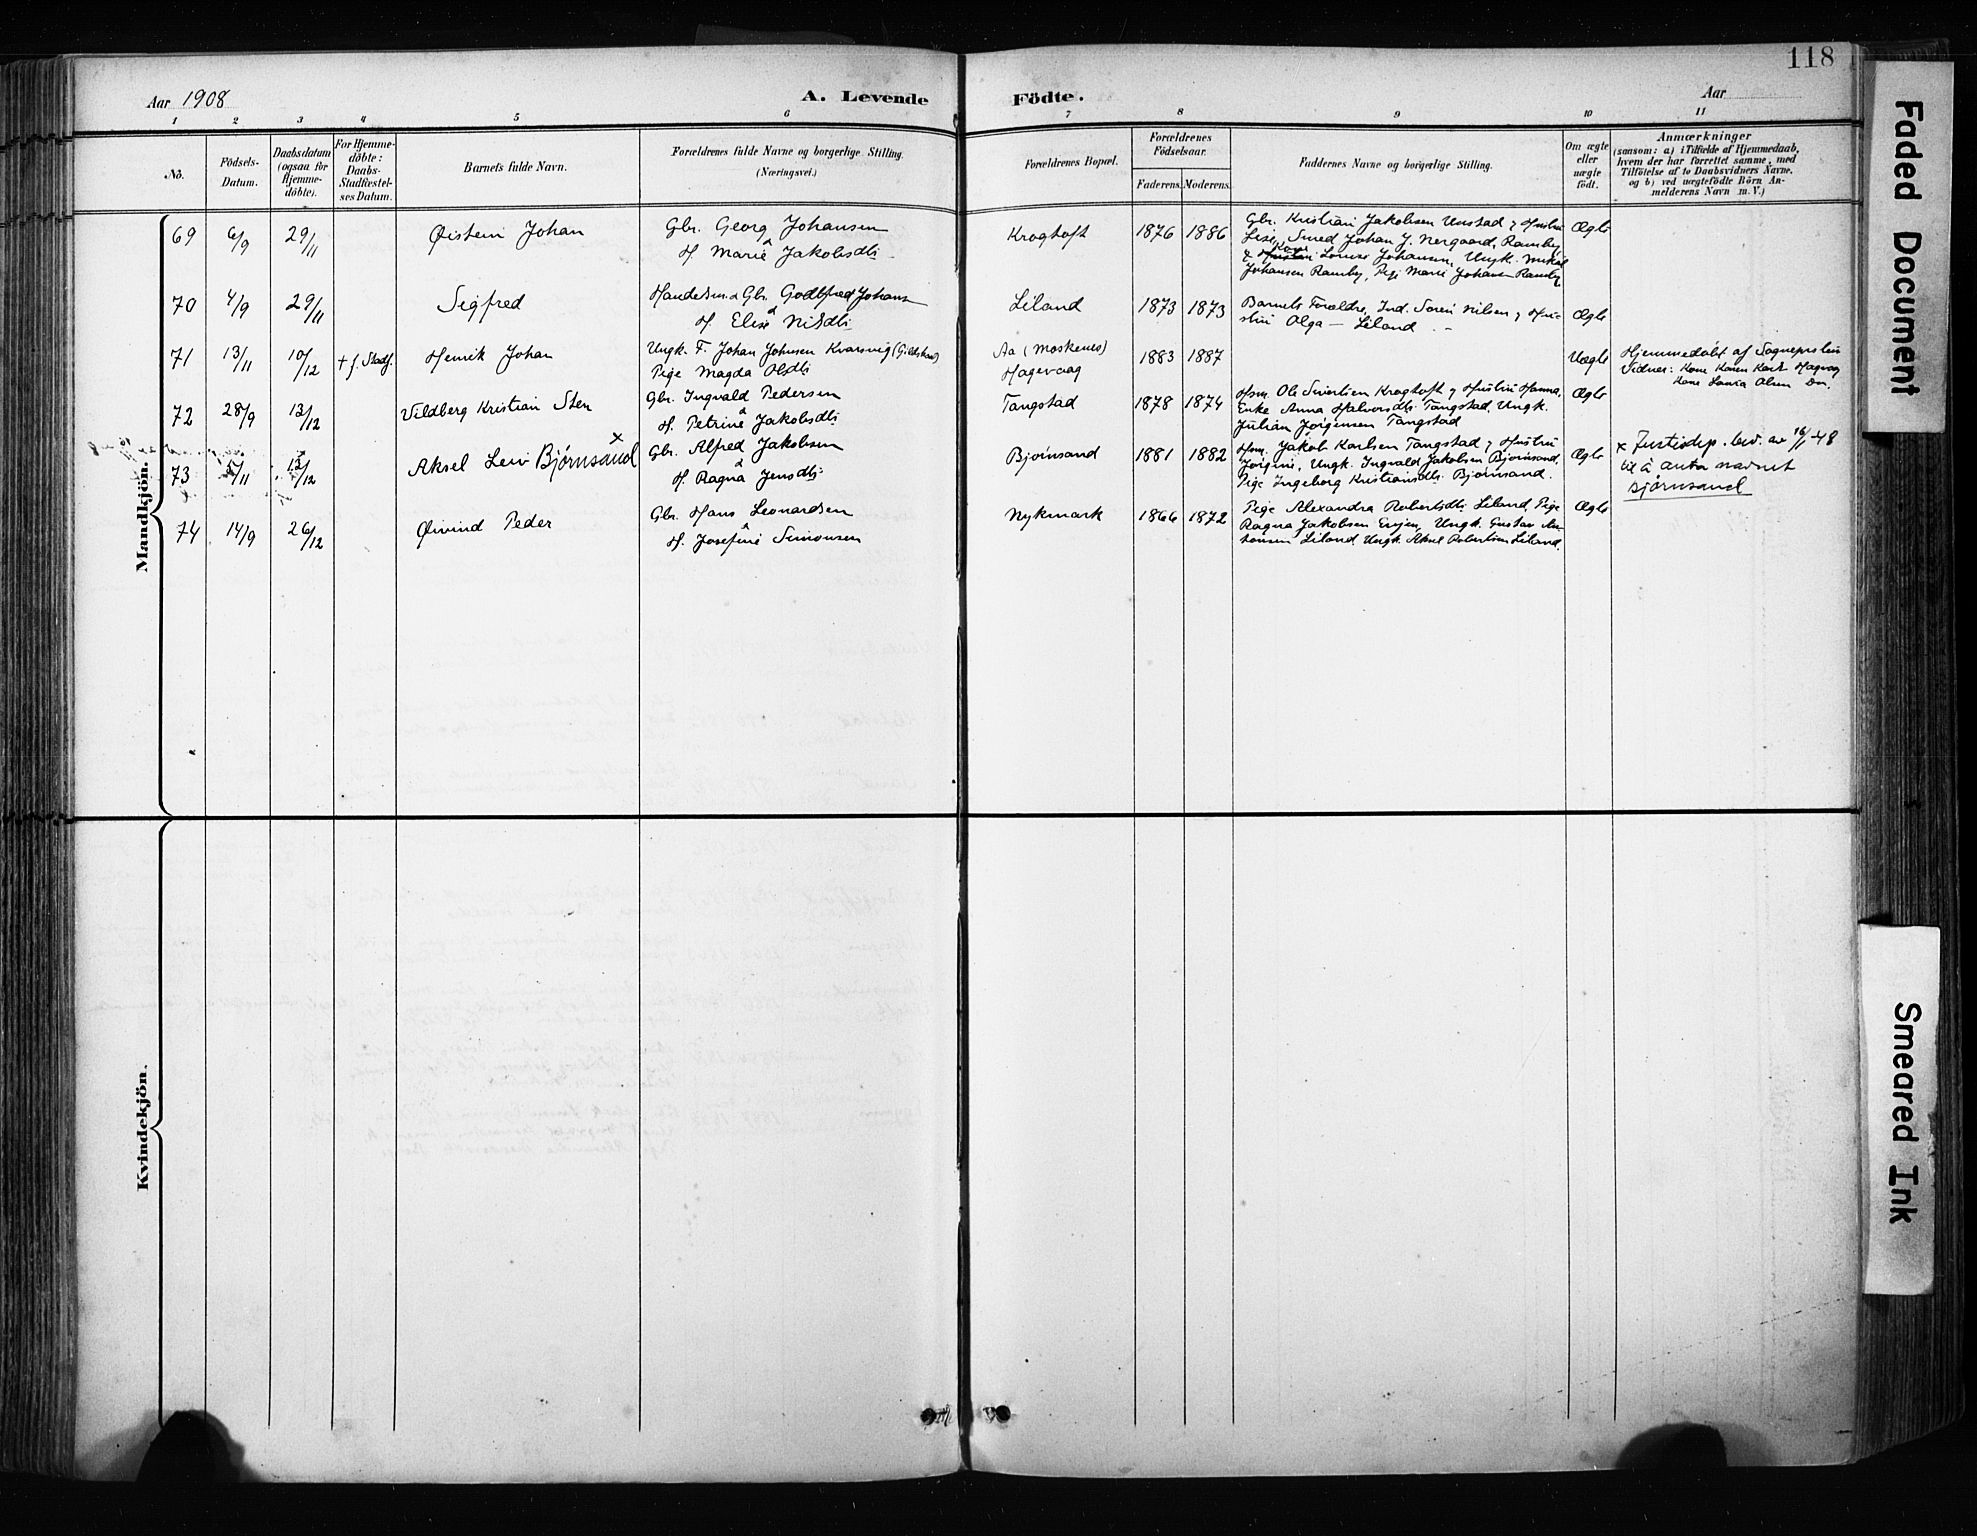 118
Aar 1908
A. Levende
Födte.
Aar
1 2 3 4 5 6 7 8 9 10 11
No.
Födsels-
Datum.
Daabsdatum
(ogsaa for
Hjemme-
döbte).
For Hjemme-
döbte:
Daabs-
Stadfæstel-
ses Datum.
Barnets fulde Navn.
Forældrenes fulde Navne og borgerlige Stilling.
(Næringsvei.)
Forældrenes Bopæl.
Forældrenes
Födselsaar.
Faderens. Moderens.
Faddernes Navne og borgerlige Stilling.
Om ægte
eller
uægte
födt.
Anmærkninger
(saasom: a) i Tilfælde af Hjemmedaab,
hvem der har forrettet samme, med
Tilföielse af to Daabsvidners Navne,
og b) ved uægtefödte Börn An-
melderens Navn m. V.)
Mandkjön.
69 6/9 29/11 Øistein Johan
Gbr. Georg Johansen
&
H. Marie Jakobsdtr.
Krogtoft 1876 1886
Gbr. Kristian Jakobsen Unstad & Hustru
Lise, Smed Johan J. Nergaard, Ramby
Kone
& Hustru Louise Johansen, Ungk. Mikal
Johansen Ramby, Pige Marie Johansen Ramby
Ægte
70 4/9 29/11 Sigfred
Handelsm. & Gbr. Godtfred Johansen
&
H. Elise Nilsdtr
Liland 1873 1873
Barnets Forældre, Ind. Soren Nilsen & Hu-
stru Olga — Liland
Ægte
71 13/11 10/12 + f. Stadf. Henrik Johan
Ungk. F. Johan Johnsen Kvarsvig (Gildskaal)
Pige Magda Olsdtr
Aa (Moskenes)
Hagevaag
1883 1887
Uægte
Hjemmedøbt af Sogneprsten
Vidner: Kone Karen Kort Hagvag
Kone Laura Olsen Do.
72 28/9 13/12 Vildberg Kristian Sten
Gbr. Ingvald Pedersen
&
H. Petrine Jakobsdtr
Tangstad 1878 1874
Hsm. Ole Sivertsen Krogtoft & Hustru Hanna,
Enke Anna Halvorsdtr. Tangstad, Ungk.
Julian Jørgensen Tangstad
Ægte
73 5/11 13/12 Aksel Leiv Bjørnsand x
Gbr. Alfred Jakobsen
&
H. Ragna Jensdtr
Bjornsand 1881 1882
Hsm. Jakob Karlsen Tangstad & Hustru
Jorgine, Ungk. Ingvald Jakobsen Bjornsand,
Pige Ingeborg Kristiansdtr. Bjornsand.
Ægte
x Justisdep. bev. av 16/1-48
til å anta navnet
Bjørnsand
74 14/9 26/12 Øivind Peder
Gbr. Hans Leonardsen
&
H. Josefine Simonsen
Nykmark 1866 1872
Pige Alexandra Robertsdtr. Liland, Pige
Ragna Jakobsen Evjen, Ungk. Gustav An-
tonsen Liland, Ungk. Aksel Robertsen Liland.
Ægte
Kvindekjön.
Faded Document
Smeared Ink